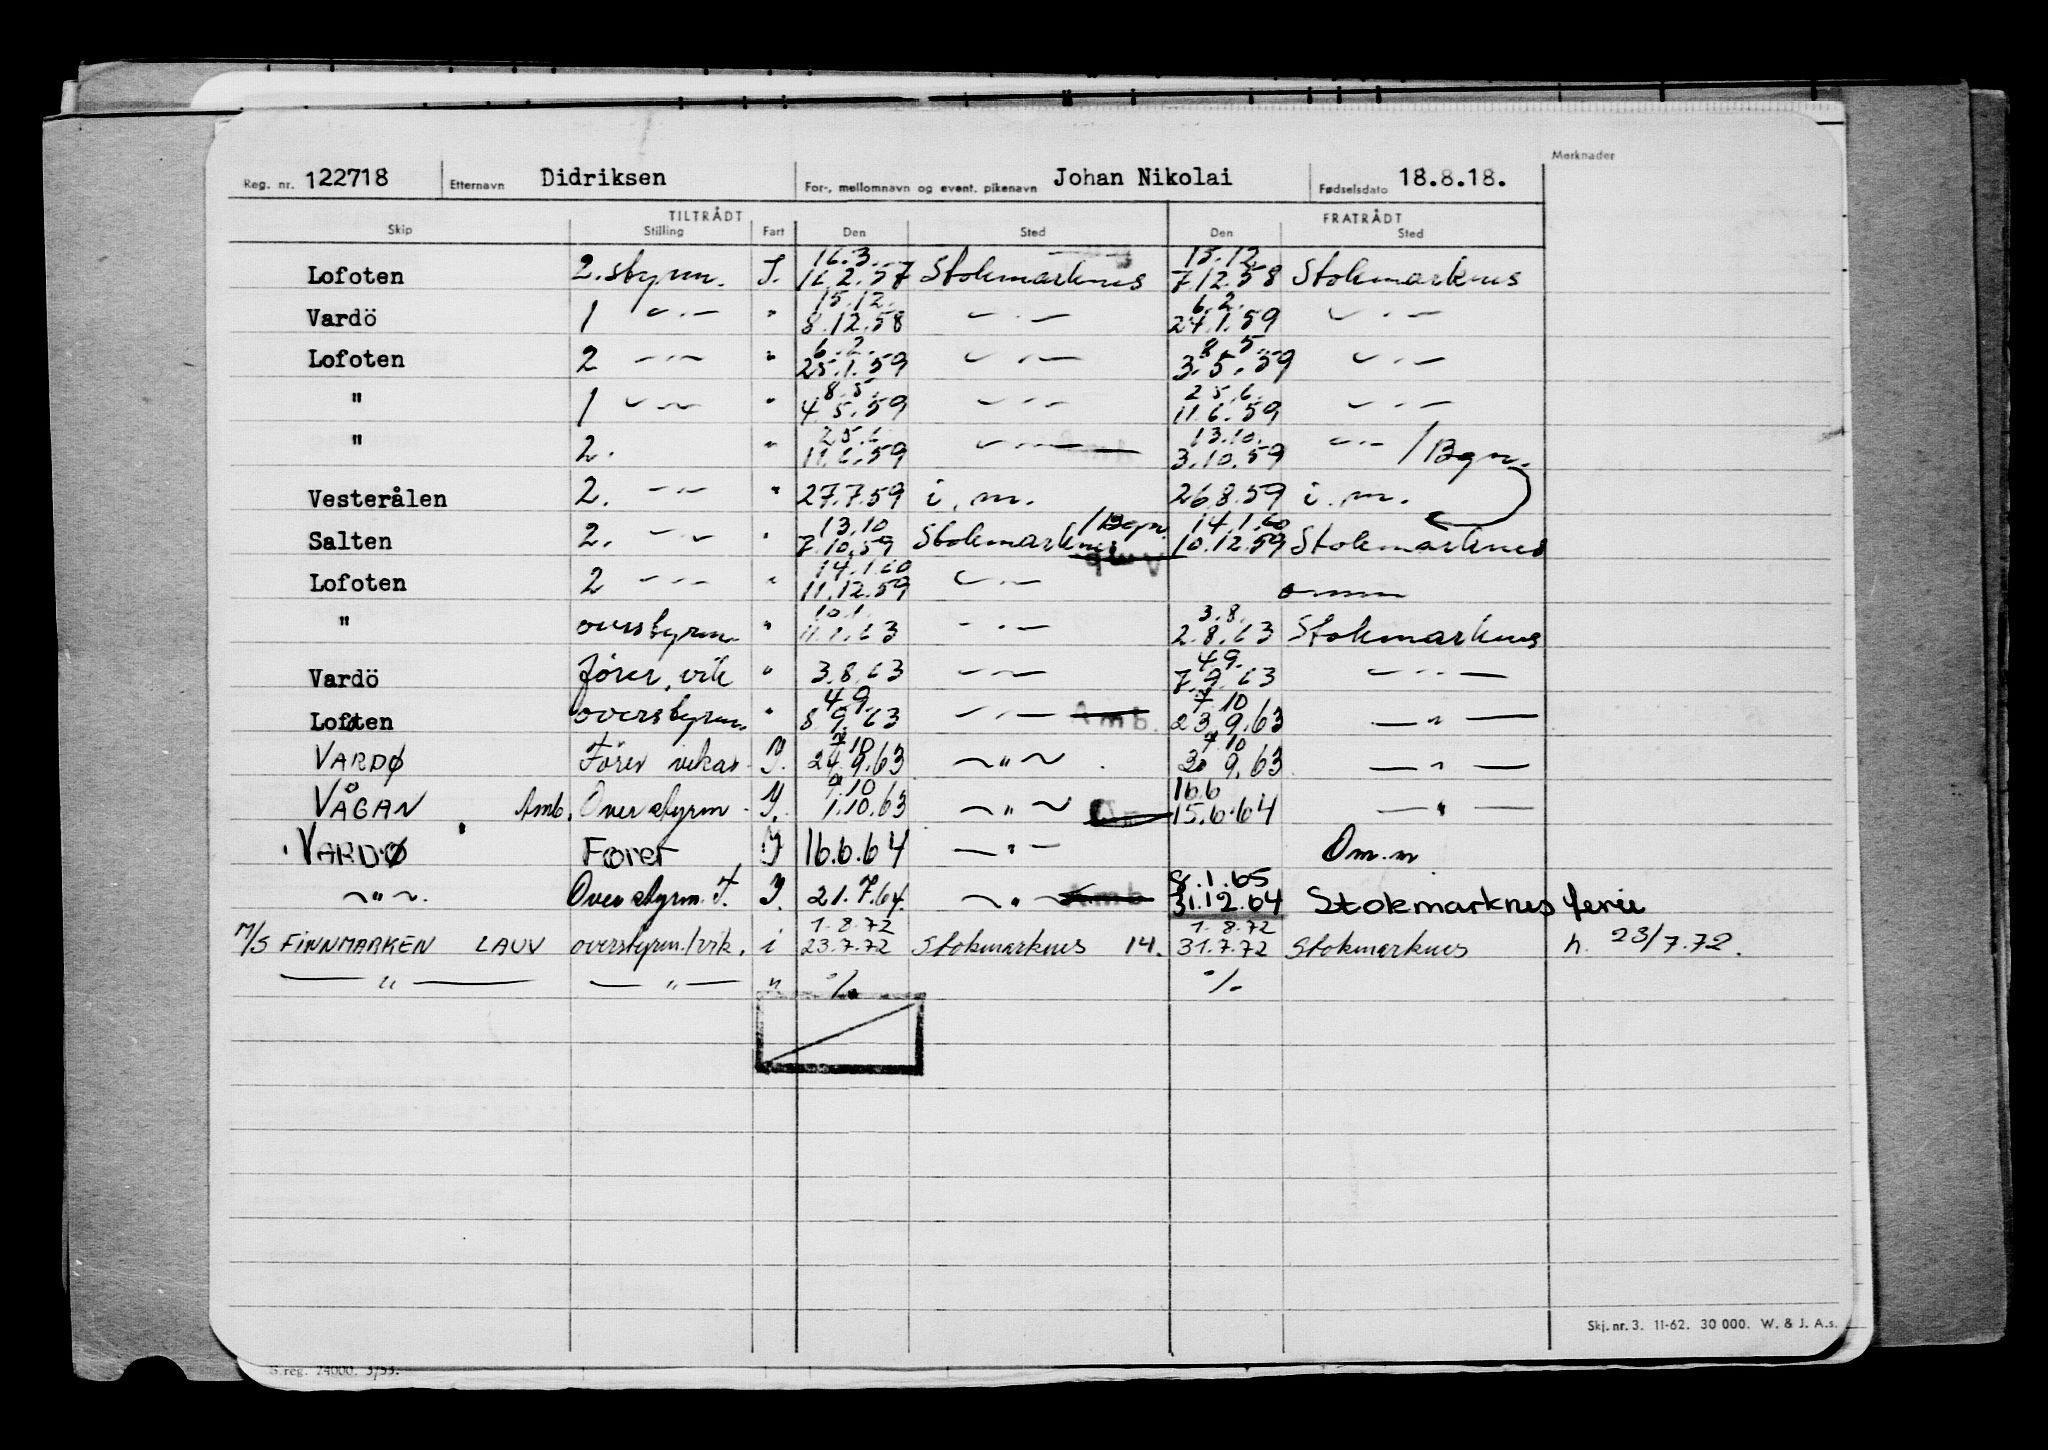 Merknader
Reg. nr. 122718 Etternavn Didriksen For-, mellomnavn og event. pikenavn Johan Nikolai Fødselsdato 18.8.18.
TILTRÅDT FRATRÅDT
Skip Stilling Fart Den Sted Den Sted
16.3. 15.12.
Lofoten 2. styrm. I. 16.2.57 Stokmarknes 7.12.58 Stokmarknes
15.12. 6.2.
Vardö 1 — " — " 8.12.58 — " — 24.1.59 — " —
6.2. 8.5.
Lofoten 2 — " — " 25.1.59 — " — 3.5.59 — " —
8.5. 25.6.
" 1 — " — " 4.5.59 — " — 11.6.59 — " —
25.6. 13.10.
" 2. " 11.6.59 — " — 3.10.59 — " — /Bgn.
Vesterålen 2. — " — " 27.7.59 i. m. 26.8.59 i. m.
13.10 /Bgn. 14.1.60
Salten 2. — " — " 7.10.59 Stokmarknes 10.12.59 Stokmarknes
14.1.60
Lofoten 2 — " — " 11.12.59 — " — omm
10.1. 3.8.
" overstyrm. " 11.1.63 — " — 2.8.63 Stokmarknes
4.9.
Vardö fører, vik " 3.8.63 — " — 7.9.63 — " —
4.9. 7.10
Lofoten overstyrm. " 8.9.63 — " — Amb. 23.9.63 — " —
7.10 7.10
VARDØ Förer vikar. I. 24.9.63 — " — 30.9.63 — " —
9.10 16.6
VÅGAN Amb. Overstyrm. I. 1.10.63 — " — 15.6.64 — " —
VARDØ Fører I 16.6.64 — " — Om.m
8.1.65
— " —. Overstyrm. F. I. 21.7.64. — " — Amb 31.12.64 Stokmarknes ferie
1.8.72 1.8.72
M/S FINNMARKEN LAUV overstyrm./vik. i 23.7.72 Stokmarknes 14. 31.7.72 Stokmarknes h. 23/7.72.
— " — — " — " %. %.
Skj. nr. 3. 11-62. 30 000. W. & J. A.s.
S. reg. 24000. 3/53.